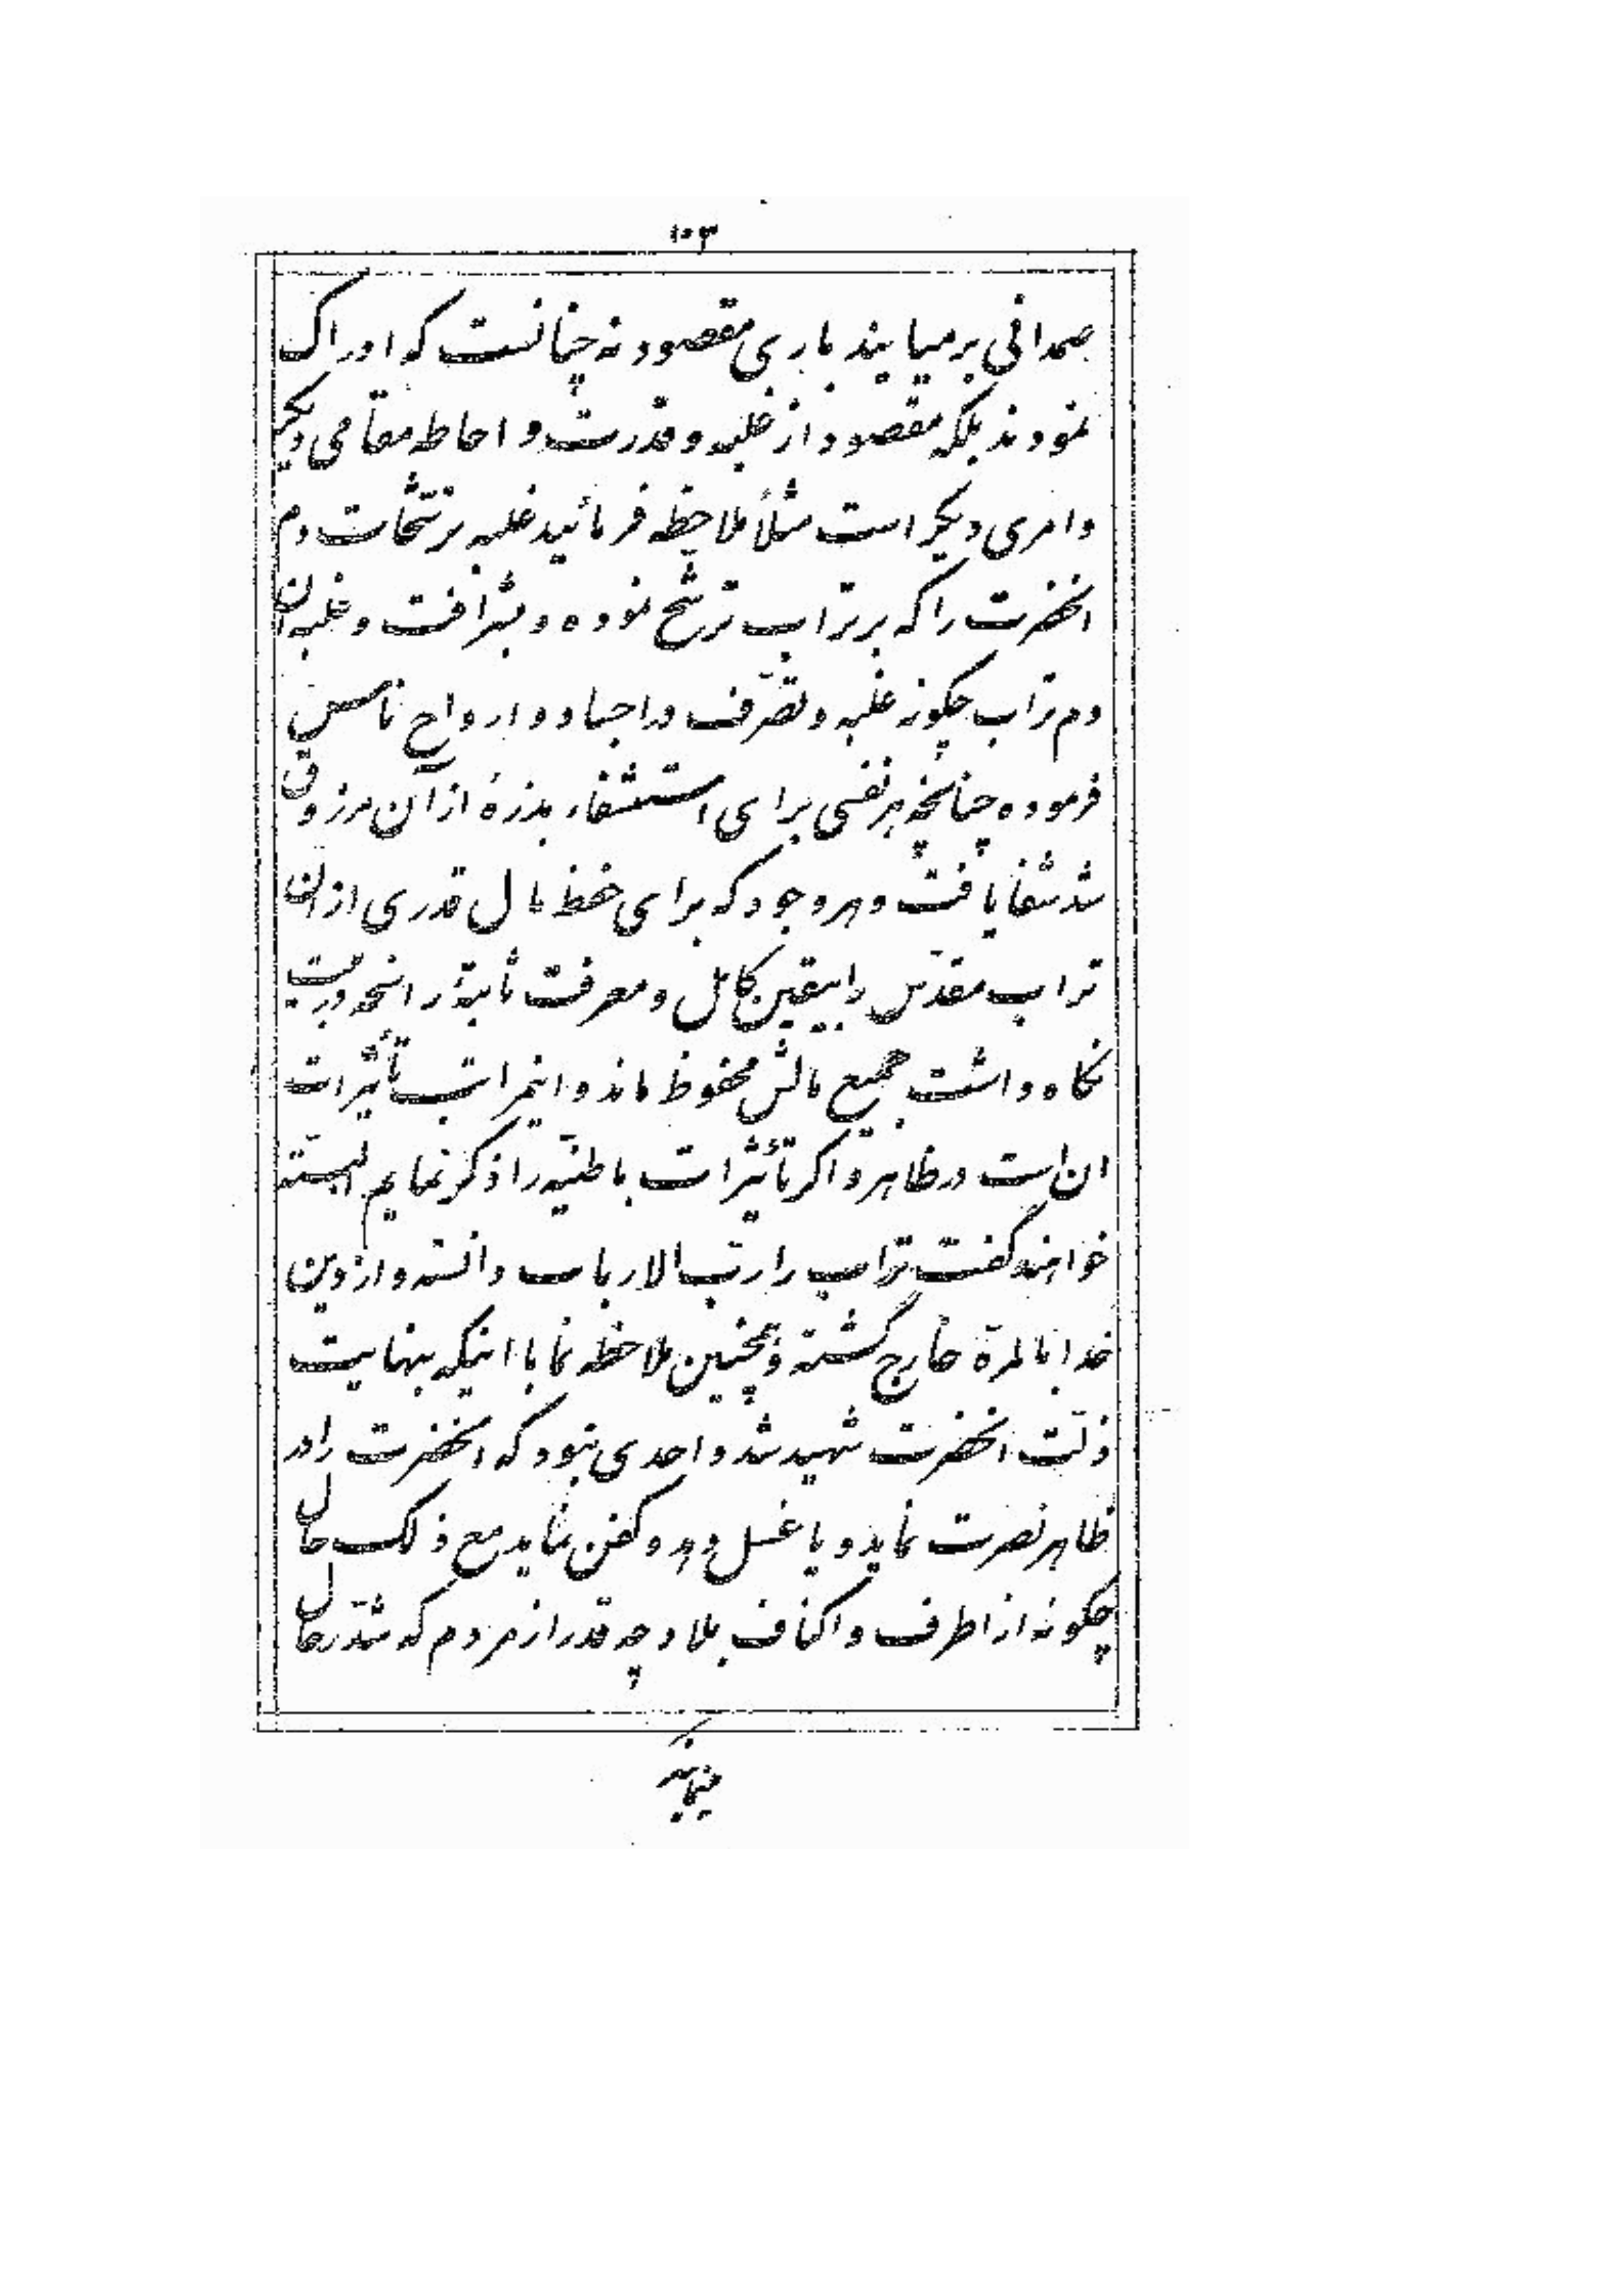 ۱۰۳
صمدانی بر میایند باری مقصود نه چنانست که ادراک
نمودند بلکه مقصود از غلبه و قدرت و احاطه مقامی دیگر
و امری دیگر است مثلاً ملاحظه فرمائید غلبه ترشحات دم
انحضرت را که بر تراب ترشح نموده و بشرافت و غلبه ان
دم تراب چگونه غلبه و تصرّف در اجساد و ارواح ناس
فرموده چنانچه هر نفسی برای استشفاء بذرهٔ از آن مرزوق
شد شفا یافت و هر وجود که برای حفظ مال قدری از ان
تراب مقدّس را بیقین کامل و معرفت ثابتهٔ راسخه در بیت
نگاه داشت جمیع مالش محفوظ ماند و اینمراتب تأثیرات
ان است در ظاهر و اگر تأثیرات باطنیّه را ذکر نمایم البتّه
خواهند گفت تراب را ربّ الارباب دانسته و از دین
خدا بالمرّة خارج گشته و همچنین ملاحظه نما با اینکه بنهایت
ذلّت انحضرت شهید شد و احدی نبود که انحضرت را در
ظاهر نصرت نماید و یا غسل دهد و کفن نماید مع ذلک حال
چگونه از اطرف و اکناف بلاد چه قدر از مردم که شدّ رحال
مینمایند